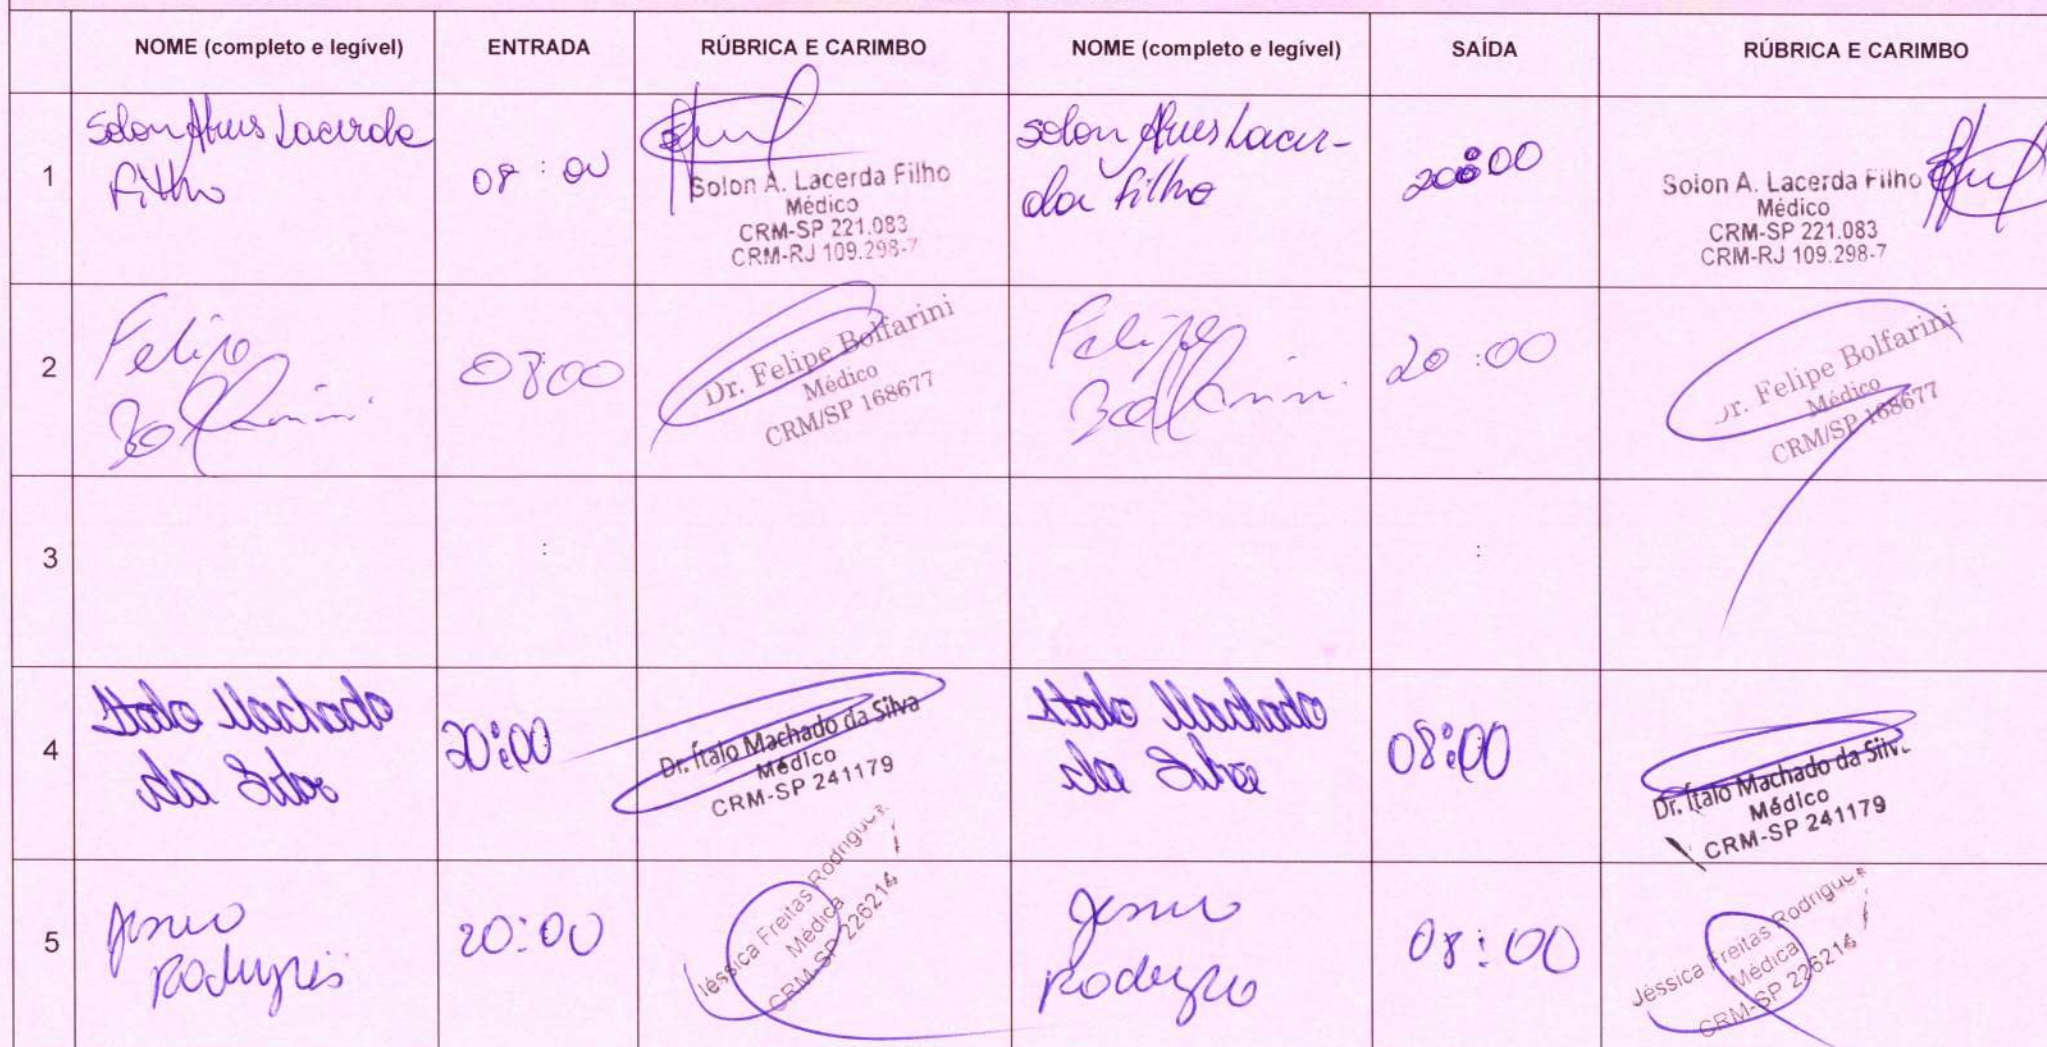 NOME (completo e legível) ENTRADA RÚBRICA E CARIMBO NOME (completo e legível) SAÍDA RÚBRICA E CARIMBO
1
Solon Alves Lacerda
Filho
08:00
Solon A. Lacerda Filho
Médico
CRM-SP 221.083
CRM-RJ 109.298-7
Solon Alves Lacer-
da Filho
20:00
Solon A. Lacerda Filho
Médico
CRM-SP 221.083
CRM-RJ 109.298-7
2
Felipe
Bolfarini
08:00
Dr. Felipe Bolfarini
Médico
CRM/SP 168677
Felipe
Bolfarini
20:00
Dr. Felipe Bolfarini
Médico
CRM/SP 168677
3
:
:
4
Italo Machado
da Silva
20:00
Dr. Ítalo Machado da Silva
Médico
CRM-SP 241179
Italo Machado
da Silva
08:00
Dr. Ítalo Machado da Silv
Médico
CRM-SP 241179
5
Rodrigues
20:00
Jéssica Freitas Rodrigues
Médica
CRM-SP 226214
08:00
Jéssica Freitas Rodrigues
Médica
CRM-SP 226214